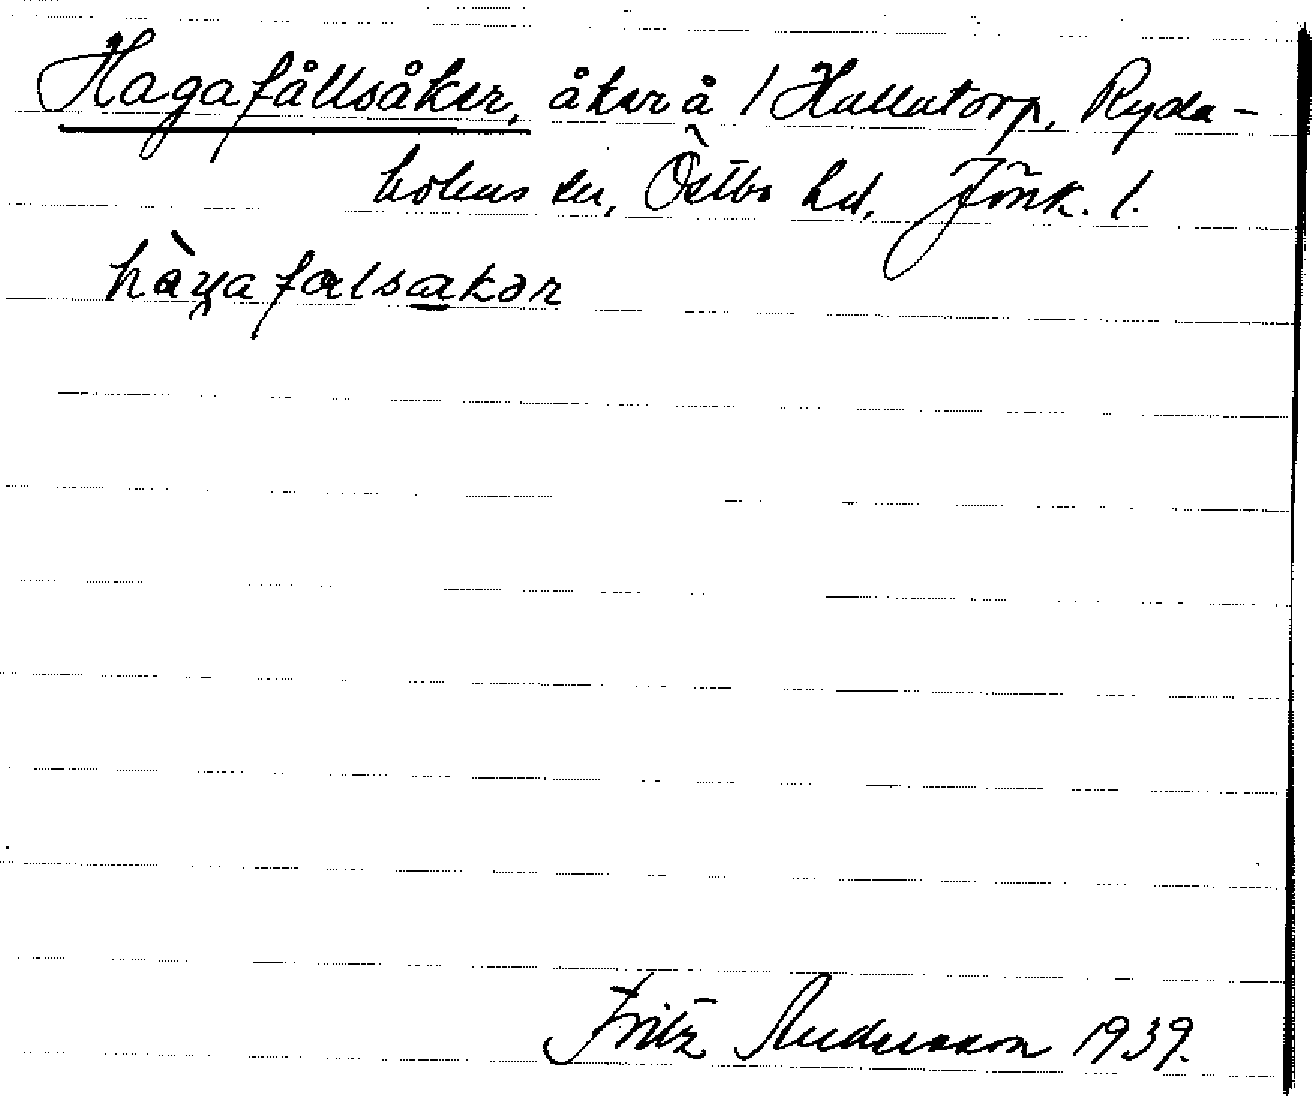 Hagafållsåker, åker å / Hallatorp, Ryda-
holms sn, Östbo hd, Jönk. l.
hàgafalsakər
Fritz Andersson 1939.